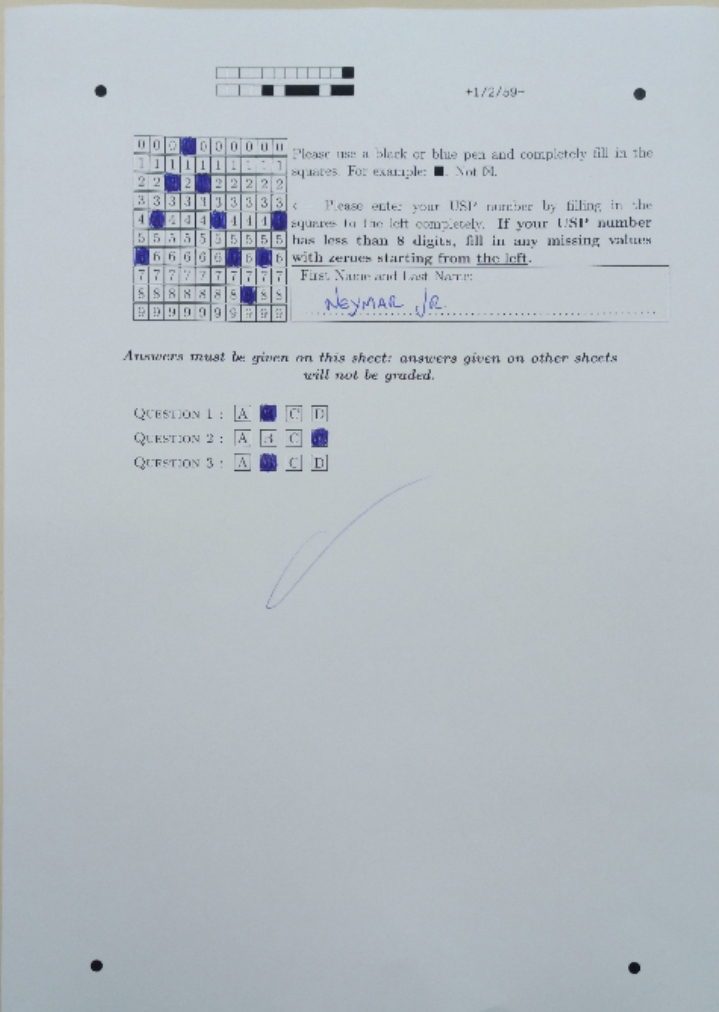 +1/2/59+
0 0 0 0 0 0 0 0 0
1 1 1 1 1 1 1 1 1 1
2 2 2 2 2 2 2 2
3 3 3 3 3 3 3 3 3 3
4 4 4 4 4 4 4
5 5 5 5 5 5 5 5 5 5
6 6 6 6 6 6 6
7 7 7 7 7 7 7 7 7 7
8 8 8 8 8 8 8 8 8
9 9 9 9 9 9 9 9 9 9
Please use a black or blue pen and completely fill in the
squares. For example: ■. Not ☒.
← Please enter your USP number by filling in the
squares to the left completely. If your USP number
has less than 8 digits, fill in any missing values
with zeroes starting from the left.
First Name and Last Name:
NEYMAR JR.
Answers must be given on this sheet: answers given on other sheets
will not be graded.
QUESTION 1 : A C D
QUESTION 2 : A B C
QUESTION 3 : A C D